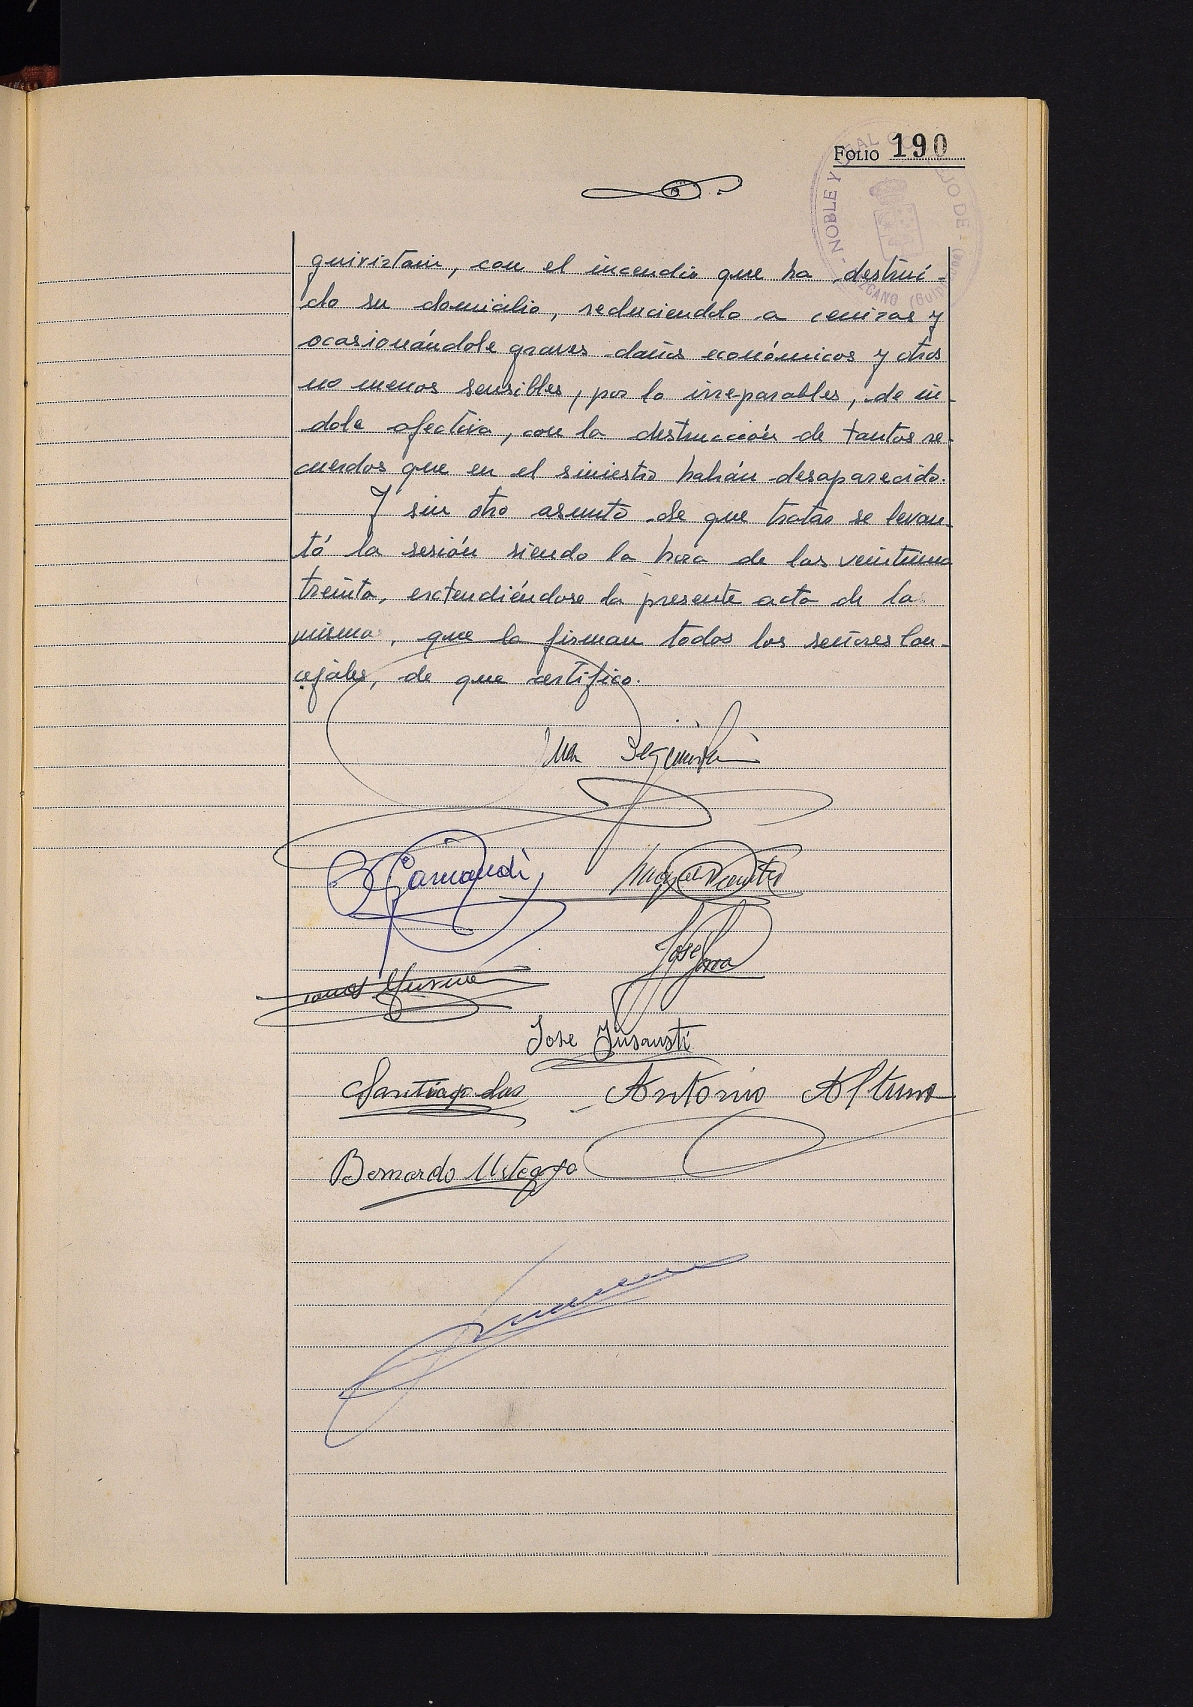 FOLIO 190
NOBLE Y LEAL CONCEJO DE
LAZCANO (Guipúzcoa)
guiristain, con el incendio que ha destruí-
do su domicilio, reduciendolo a cenizas y
ocasionándole graves daños económicos y otros
no menos sensibles, por lo irreparables, de ín-
dole afectiva, con la destrucción de tantos re-
cuerdos que en el siniestro habrán desaparecido.
Y sin otro asunto de que tratar se levan-
tó la sesión siendo la hora de las veintiuna
treinta, extendiéndose la presente acta de la
misma, que la firman todos los señores Con-
cejales, de que certifico.
José
José Insausti
Santiago
Antonio Altuna
Bernardo Ustegogo